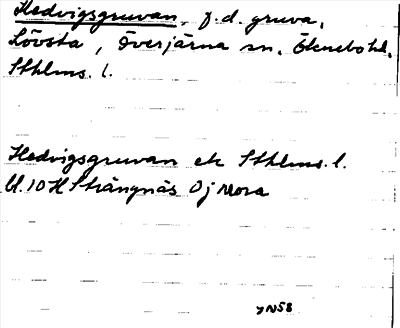 Hedvigsgruvan, f.d. gruva,
Lövsta, Överjärna sn, Öknebo hd,
Sthlms. l.
Hedvigsgruvan ek Sthlms. l.
Bl. 10 H Strängnäs Oj Mora
YN58